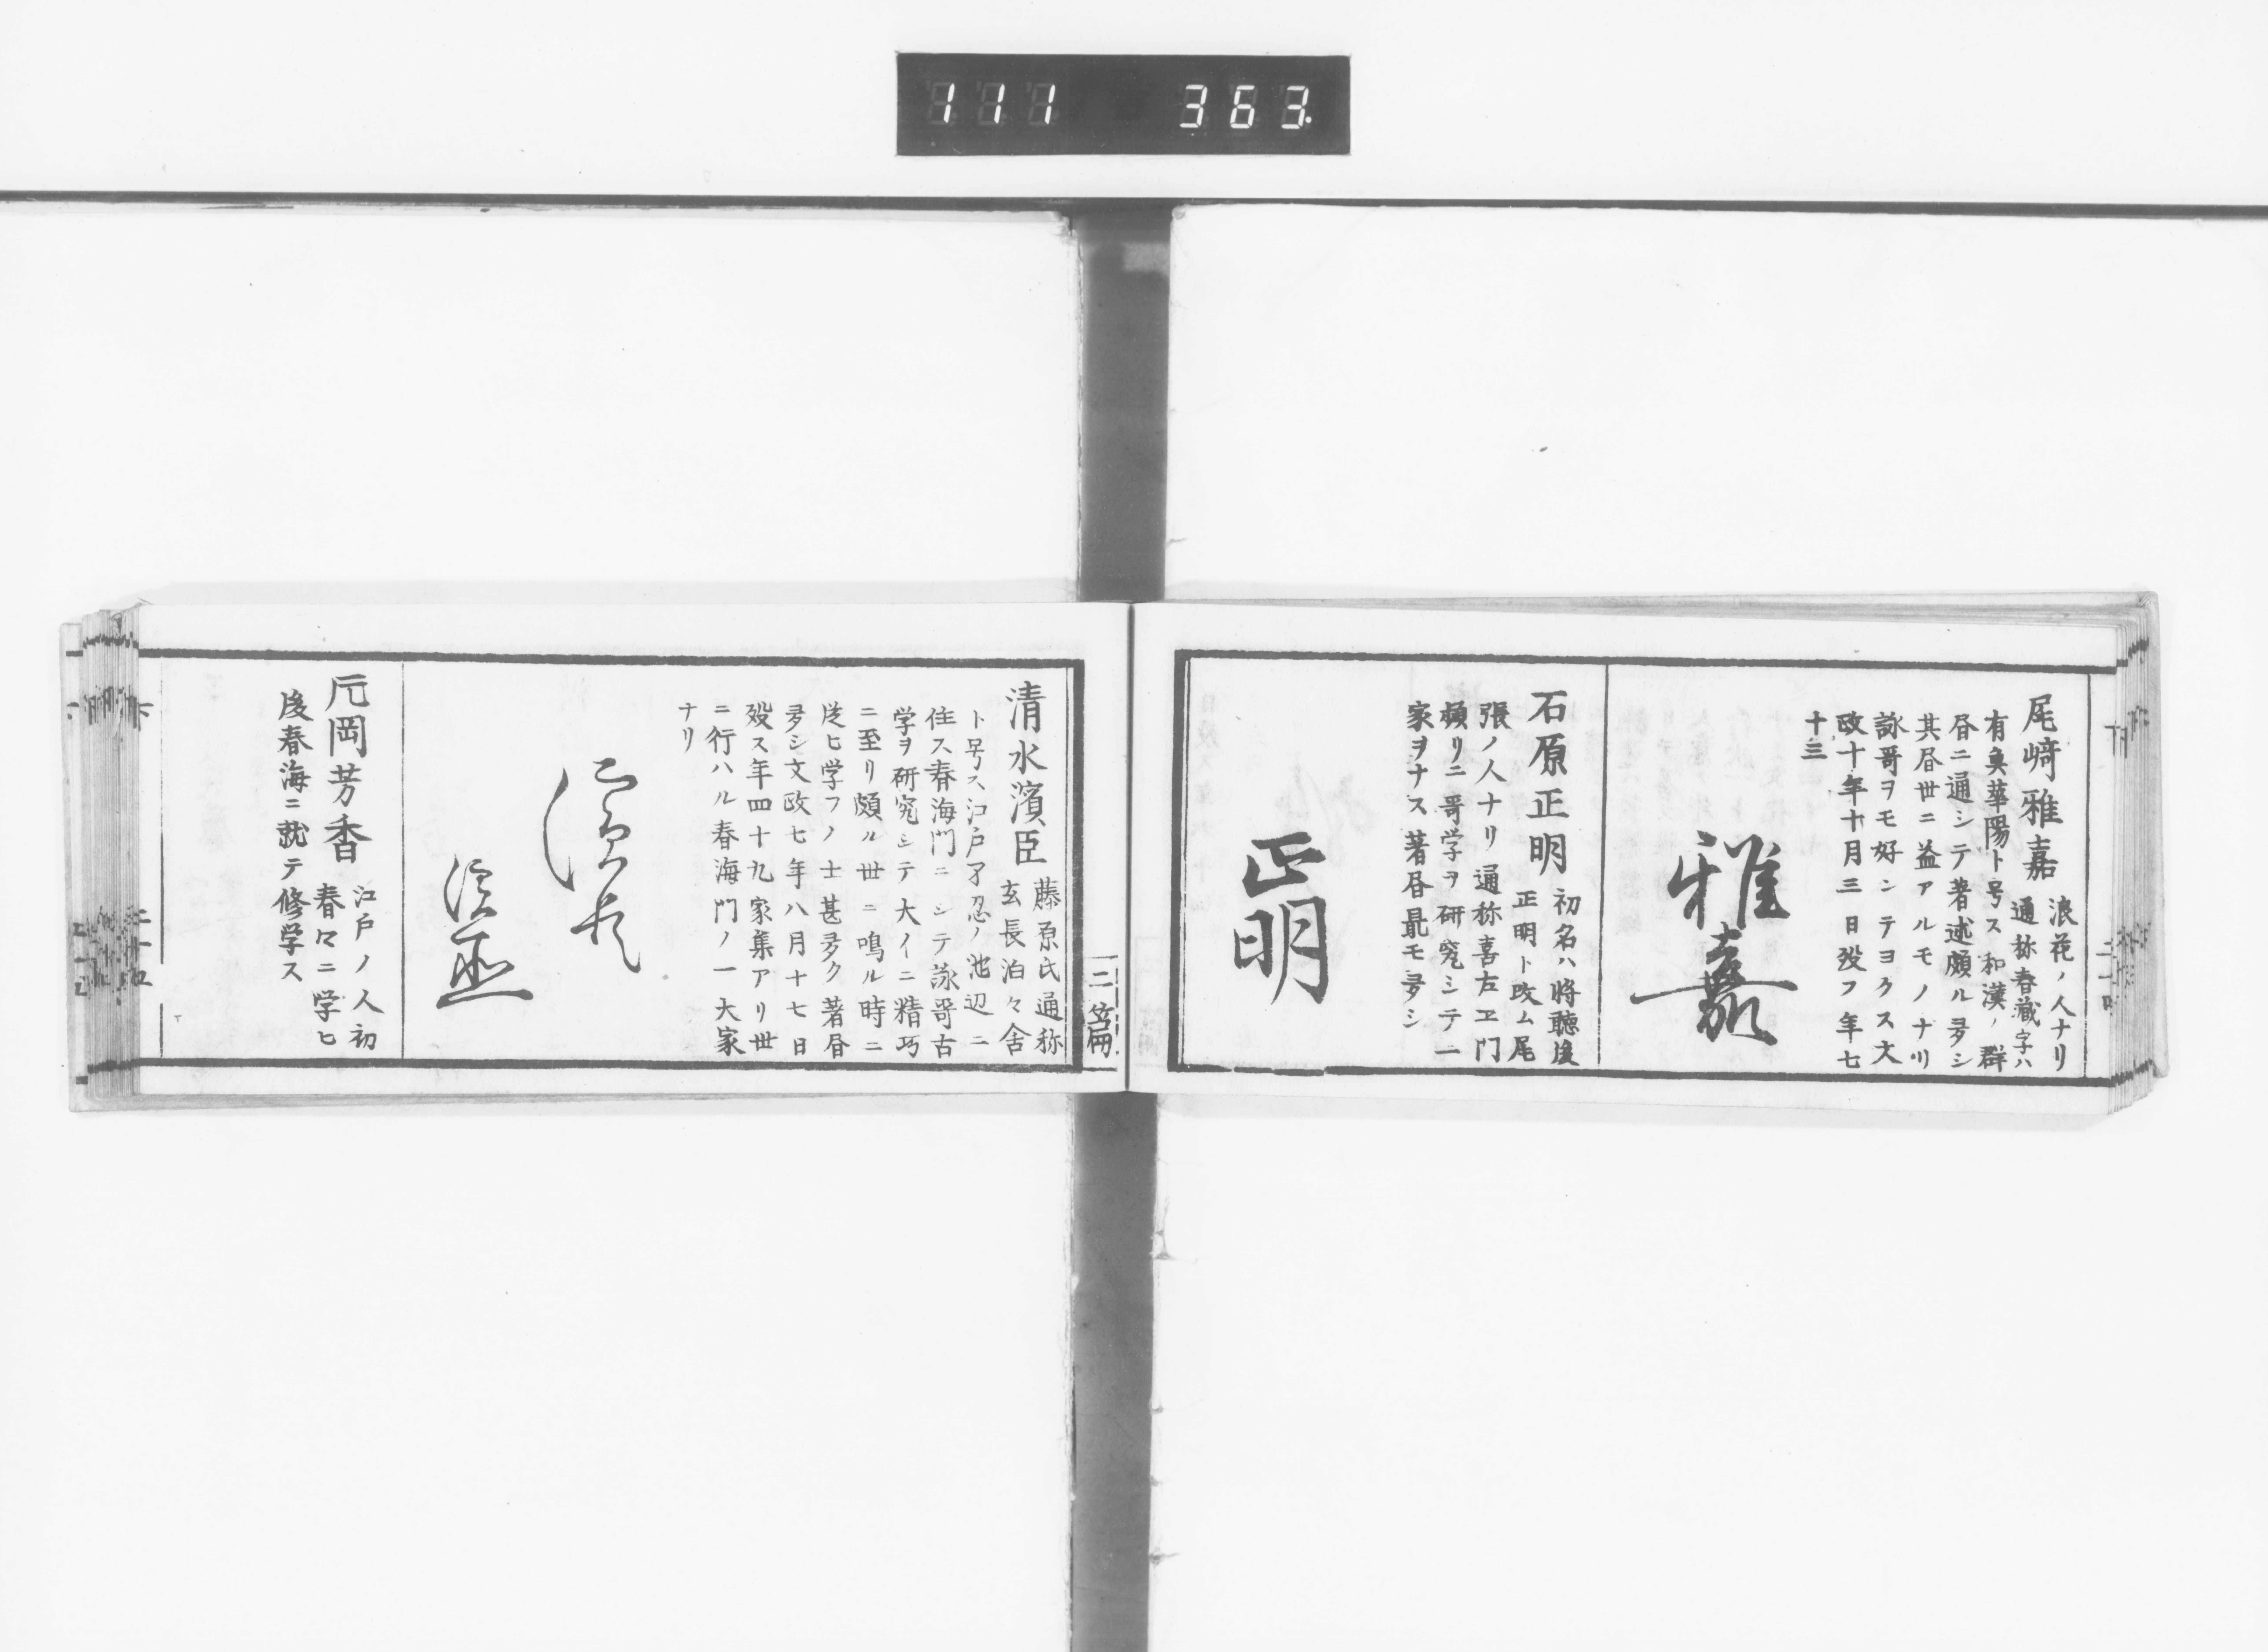 111 363.
尾﨑雅嘉 浪花ノ人ナリ
通称春蔵字ハ
有魚華陽ト号ス和漢ノ群
昼ニ通シテ著述頗ル多シ
其昼世ニ益アルモノナリ
詠哥ヲモ好ンテヨクス文
政十年十月三日歿フ年七
十三
雅嘉
石原正明 初名ハ將聴後
正明ト改ム尾
張ノ人ナリ通称喜左ヱ門
頻リニ哥学ヲ研究シテ一
家ヲナス著昼最モ多シ
正明
二篇
清水濱臣 藤原氏通称
玄長泊々舎
ト号ス江戸不忍ノ池辺ニ
住ス春海門ニシテ詠哥古
学ヲ研究シテ大イニ精巧
ニ至リ頗ル世ニ鳴ル時ニ
従ヒ学フノ士甚多ク著昼
多シ文政七年八月十七日
殁ス年四十九家集アリ世
ニ行ハル春海門ノ一大家
ナリ
濱臣
濱臣
元岡芳香 江戸ノ人初
春々ニ学ヒ
後春海ニ就テ修学ス